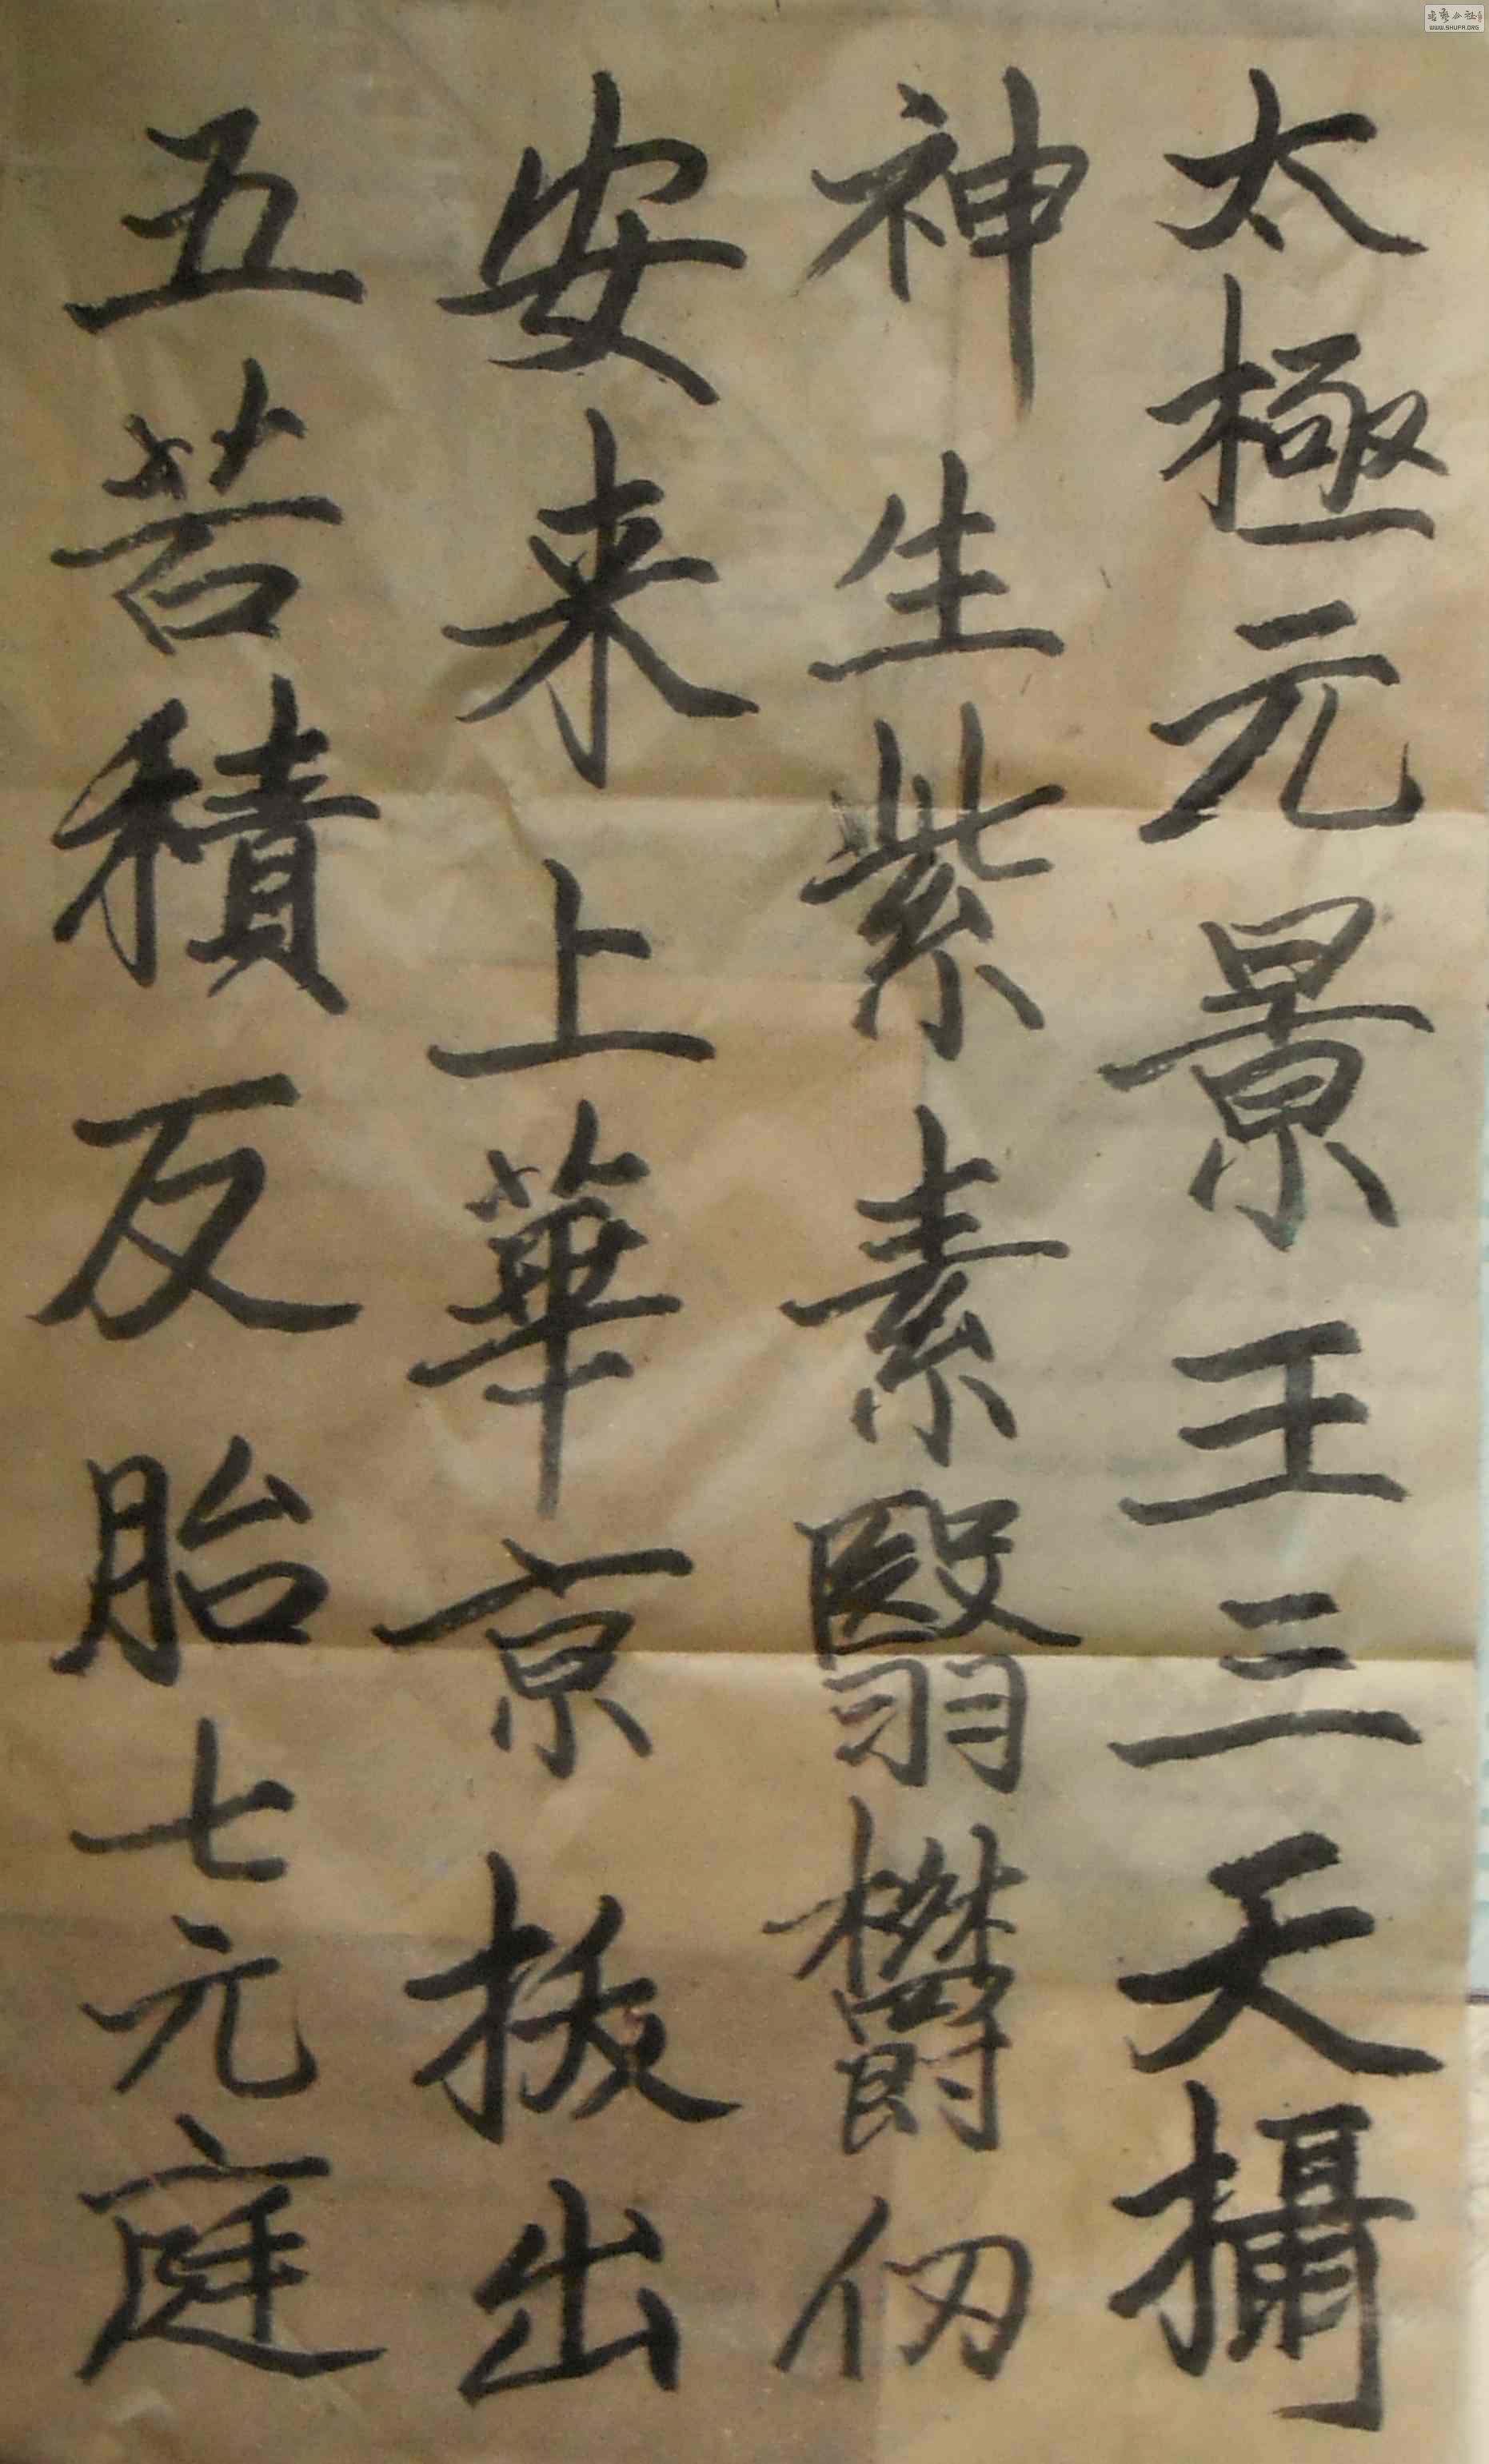 太極元景王三天攝
神生紫素翳欝仞
安来上華京拔出
五苦積反胎七元庭
WWW.SHUFA.ORG